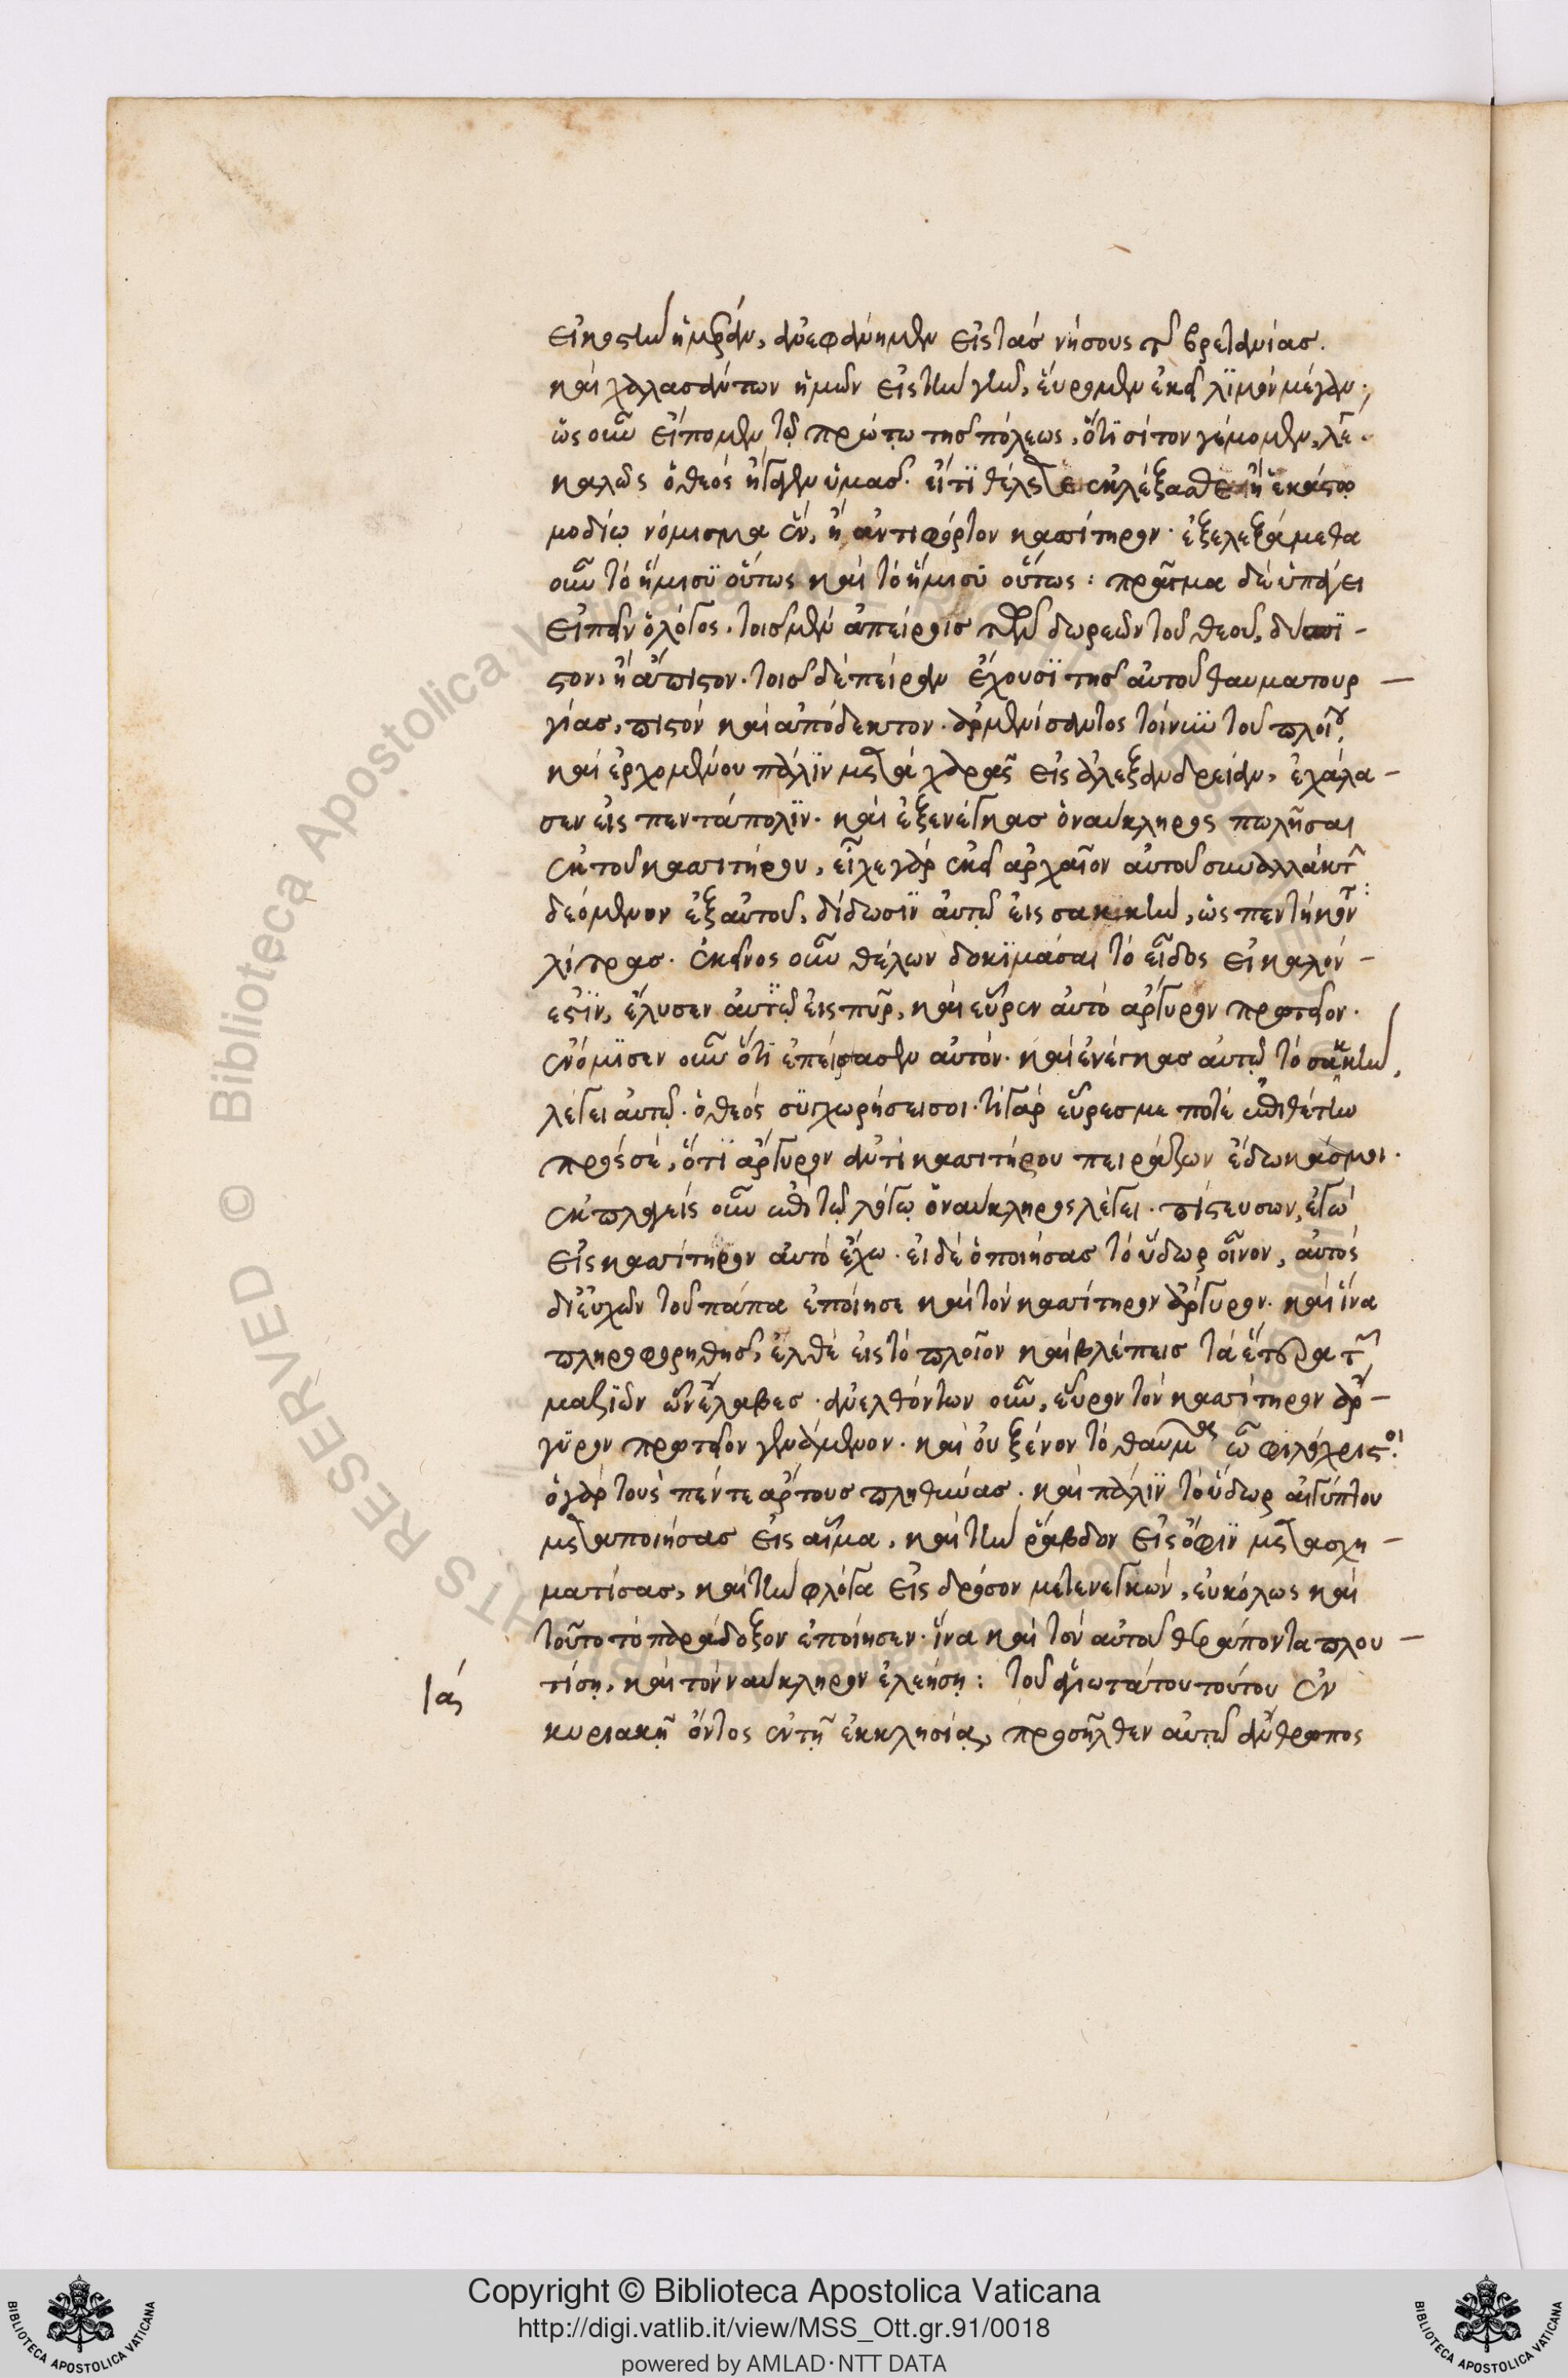 εἰκοστὴν ἡμέραν, ἀνεφάνημεν εἰς τὰς νήσους τῆς βρετανίας.
καὶ χαλασάντων ἡμῶν εἰς τὴν γῆν, εὕρομεν ἐκεῖ λϊμὸν μέγαν.
ὡς οὖν εἴπομεν τῷ πρώτῳ τῆς πόλεως, ὅτϊ σίτον γέμομεν, λέ.
καλῶς ὁ θεός ἤγαγεν ὑμας. εἴ τϊ θέλετε ἐκλέξασθε ἢ ἑκάστῳ
μοδίῳ νόμισμα ἕν, ἢ ἀντιφόρτον κασίτηρον. ἐξελεξάμεθα
οὖν τὸ ἥμισϋ οὕτως καὶ τὸ ἥμισϋ οὕτως: πρᾶγμα δὲ ὑπάγει
εἰπεῖν ὁ λόγος. τοῖς μὲν ἀπείροις τῶν δωρεῶν τοῦ θεοῦ, δύσπϊ-
στον, ἢ ἄπιστον. τοῖς δὲ πείραν ἔχουσϊ τῆς αὐτοῦ θαυματουρ-
γίας, πιστὸν καὶ ἀπόδεκτον. ἀρμενίσαντος τοίνυν τοῦ πλοίου,
καὶ ἐρχομένου πάλϊν μετὰ χαρᾶς εἰς ἀλεξανδρείαν, ἐχάλα-
σεν εἰς πεντάπολϊν. καὶ ἐξενέγκας ὁ ναύκληρος πωλῆσαι
ἐκ τοῦ κασιτήρου, εἶχε γὰρ ἐκεῖ ἀρχαῖον αὐτοῦ συναλλάκτ
δεόμενον ἐξ αὐτοῦ, δίδωσϊν αὐτῷ εἰς σακκικὴν, ὡς πεντήκοντ:
λίτρας. ἐκεῖνος οὖν θέλων δοκϊμάσαι τὸ εἶδος εἰ καλόν-
ἐστϊν, ἔλυσεν αὐτῷ εἰς πῦρ, καὶ εὗρεν αὐτὸ ἄργυρον πρωτεῖον.
ἐνόμϊσεν οὖν ὅτϊ ἐπείρασεν αὐτόν. καὶ ἐνέγκας αὐτῷ τὸ σάκκην,
λέγει αὐτῷ. ὁ θεὸς σϋγχωρήσει σοι. τί γὰρ εὗρες με ποτὲ ἐπιθέτην
πρὸς σέ, ὅτϊ ἄργυρον ἀντὶ κασιτήρου πειράζων ἔδωκάς μοι.
ἐκπλαγεὶς οὖν ἐπὶ τῷ λόγῳ ὁ ναύκληρος λέγει. πίστευσον, ἐγὼ
εἰς κασίτηρον αὐτὸ ἔχω. εἰ δὲ ὁ ποιήσας τὸ ὕδωρ οἶνον, αὐτὸς
δι εὐχῶν τοῦ πάπα ἐποίησε καὶ τὸν κασίτηρον ἄργυρον. καὶ ἵνα
πληροφορηθῇς, ἐλθὲ εἰς τὸ πλοῖον καὶ βλέπεις τὰ ἕτερα τῶν
μαζϊῶν ὧν ἔλαβες. ἀνελθόντων οὖν, εὗρον τὸν κασίτηρον ἄρ-
γϋρον πρωτεῖον γενάμενον. καὶ οὐ ξένον τὸ θαῦμα ὦ φιλόχριστοι.
ὁ γὰρ τοὺς πέντε ἄρτους πληθύνας. καὶ πάλϊν τὸ ὕδωρ αἰγύπτου
μεταποιήσας εἰς αἷμα, καὶ τὴν ῥάβδον εἰς ὄφϊν μετασχη-
ματίσας, καὶ τὴν φλόγα εἰς δρόσον μετενεγκών, εὐκόλως καὶ
τοῦτο τὸ παράδοξον ἐποίησεν. ἵνα καὶ τὸν αὐτοῦ θεράποντα πλου-
τίσῃ, καὶ τὸν ναύκληρον ἐλεήσῃ: τοῦ ἁγιωτάτου τούτου ἐν
ια
κυριακῇ ὄντος ἐν τῇ ἐκκλησίᾳ, προσῆλθεν αὐτῷ ἄνθρωπος
Copyright © Biblioteca Apostolica Vaticana
http://digi.vatlib.it/view/MSS_Ott.gr.91/0018
powered by AMLAD·NTT DATA